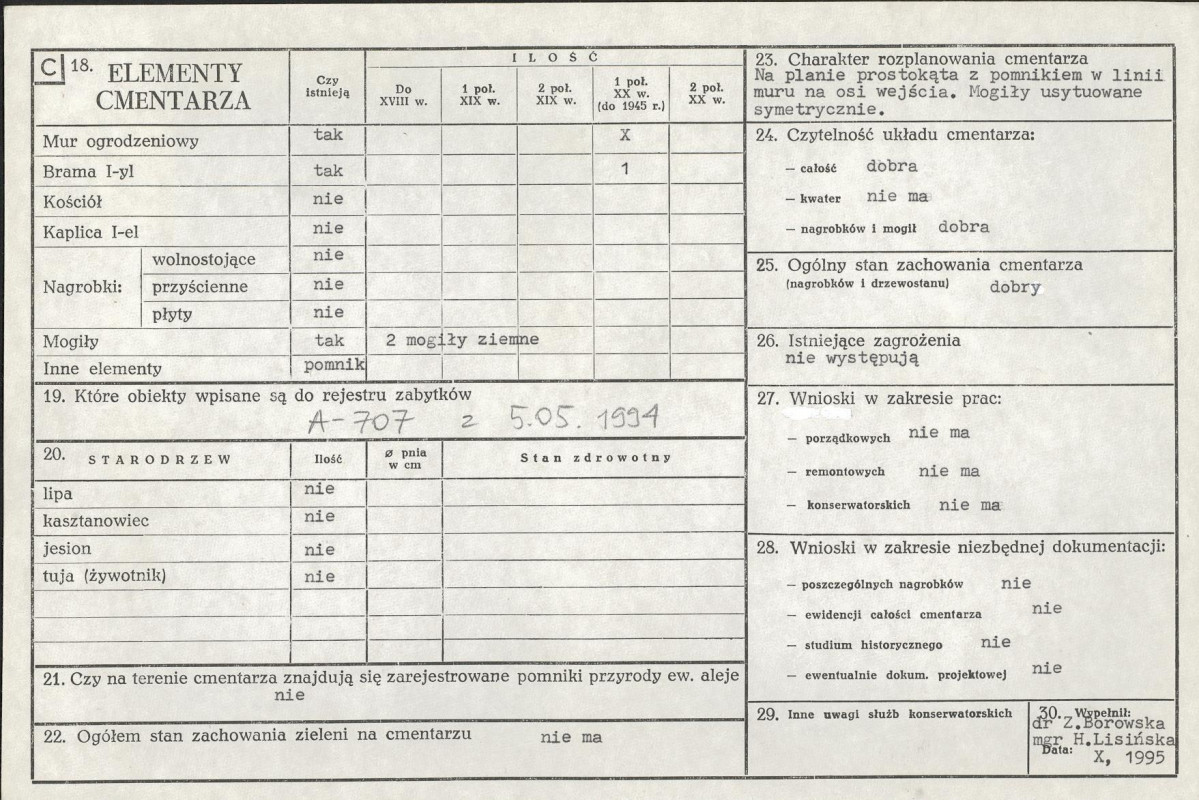 C 18. ELEMENTY
CMENTARZA
Czy
istnieją
ILOŚĆ
Do
XVIII w.
1 poł.
XIX w.
2 poł.
XIX w.
1 poł.
XX w.
(do 1945 r.)
2 poł.
XX w.
Mur ogrodzeniowy tak X
Brama I-yl tak 1
Kościół nie
Kaplica I-el nie
Nagrobki:
wolnostojące nie
przyścienne nie
płyty nie
Mogiły tak 2 mogiły ziemne
Inne elementy pomnik
19. Które obiekty wpisane są do rejestru zabytków
A-707 z 5.05.1994
20. STARODRZEW Ilość
ø pnia
w cm
Stan zdrowotny
lipa nie
kasztanowiec nie
jesion nie
tuja (żywotnik) nie
21. Czy na terenie cmentarza znajdują się zarejestrowane pomniki przyrody ew. aleje
nie
22. Ogółem stan zachowania zieleni na cmentarzu nie ma
23. Charakter rozplanowania cmentarza
Na planie prostokąta z pomnikiem w linii
muru na osi wejścia. Mogiły usytuowane
symetrycznie.
24. Czytelność układu cmentarza:
— całość dobra
— kwater nie ma
— nagrobków i mogił dobra
25. Ogólny stan zachowania cmentarza
(nagrobków i drzewostanu) dobry
26. Istniejące zagrożenia
nie występują
27. Wnioski w zakresie prac:
— porządkowych nie ma
— remontowych nie ma
— konserwatorskich nie ma
28. Wnioski w zakresie niezbędnej dokumentacji:
— poszczególnych nagrobków nie
— ewidencji całości cmentarza nie
— studium historycznego nie
— ewentualnie dokum. projektowej nie
29. Inne uwagi służb konserwatorskich
30. Wypełnił:
dr Z.Borowska
mgr H.Lisińska
Data:
X, 1995